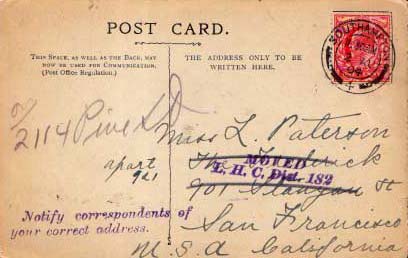 POST CARD.
THIS SPACE, AS WELL AS THE BACK, MAY
NOW BE USED FOR COMMUNICATION.
(Post Office Regulation.)
THE ADDRESS ONLY TO BE
WRITTEN HERE.
SOUTHAMPTON
2114 Pine
Miss L. Paterson
apart
921
MOVED
L. H. C. Dist. 182
901 St
San Francisco
Notify correspondents of
your correct address.
U.S.A California